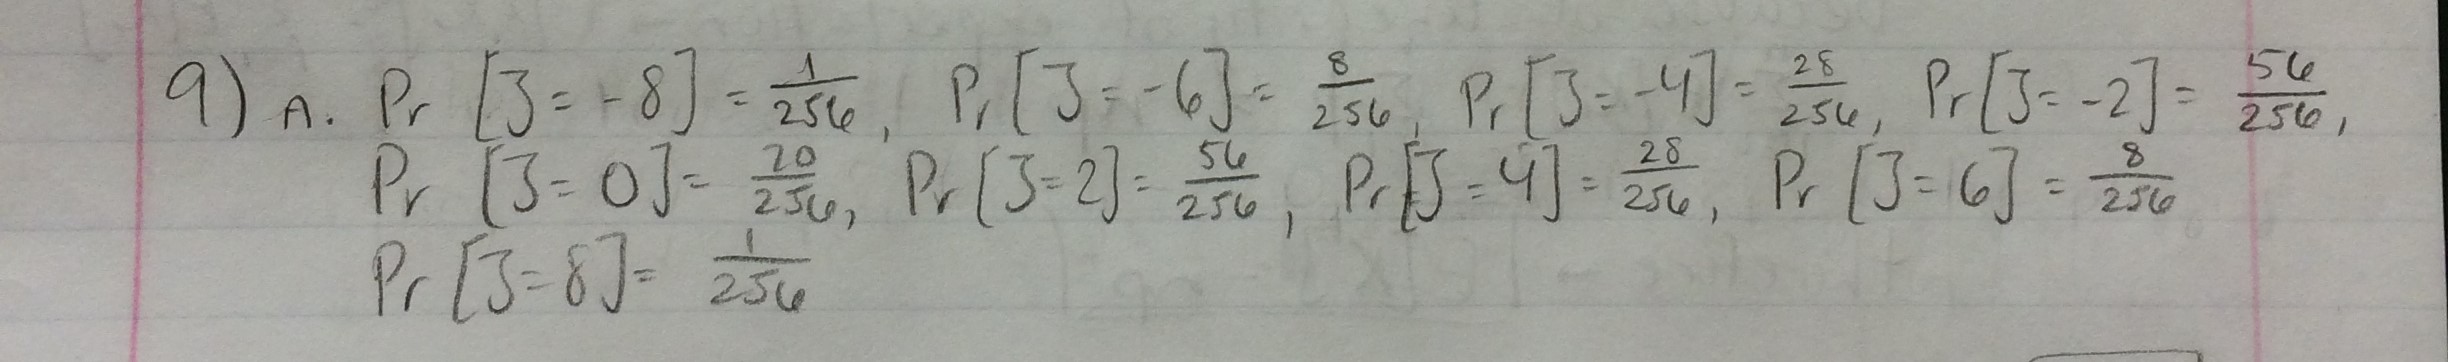 9) A. Pr [J = -8] = 1/256, Pr [J = -6] = 8/256, Pr [J = -4] = 28/256, Pr [J = -2] = 56/256,
Pr [J = 0] = 70/256, Pr [J = 2] = 56/256, Pr [J = 4] = 28/256, Pr [J = 6] = 8/256
Pr [J = 8] = 1/256